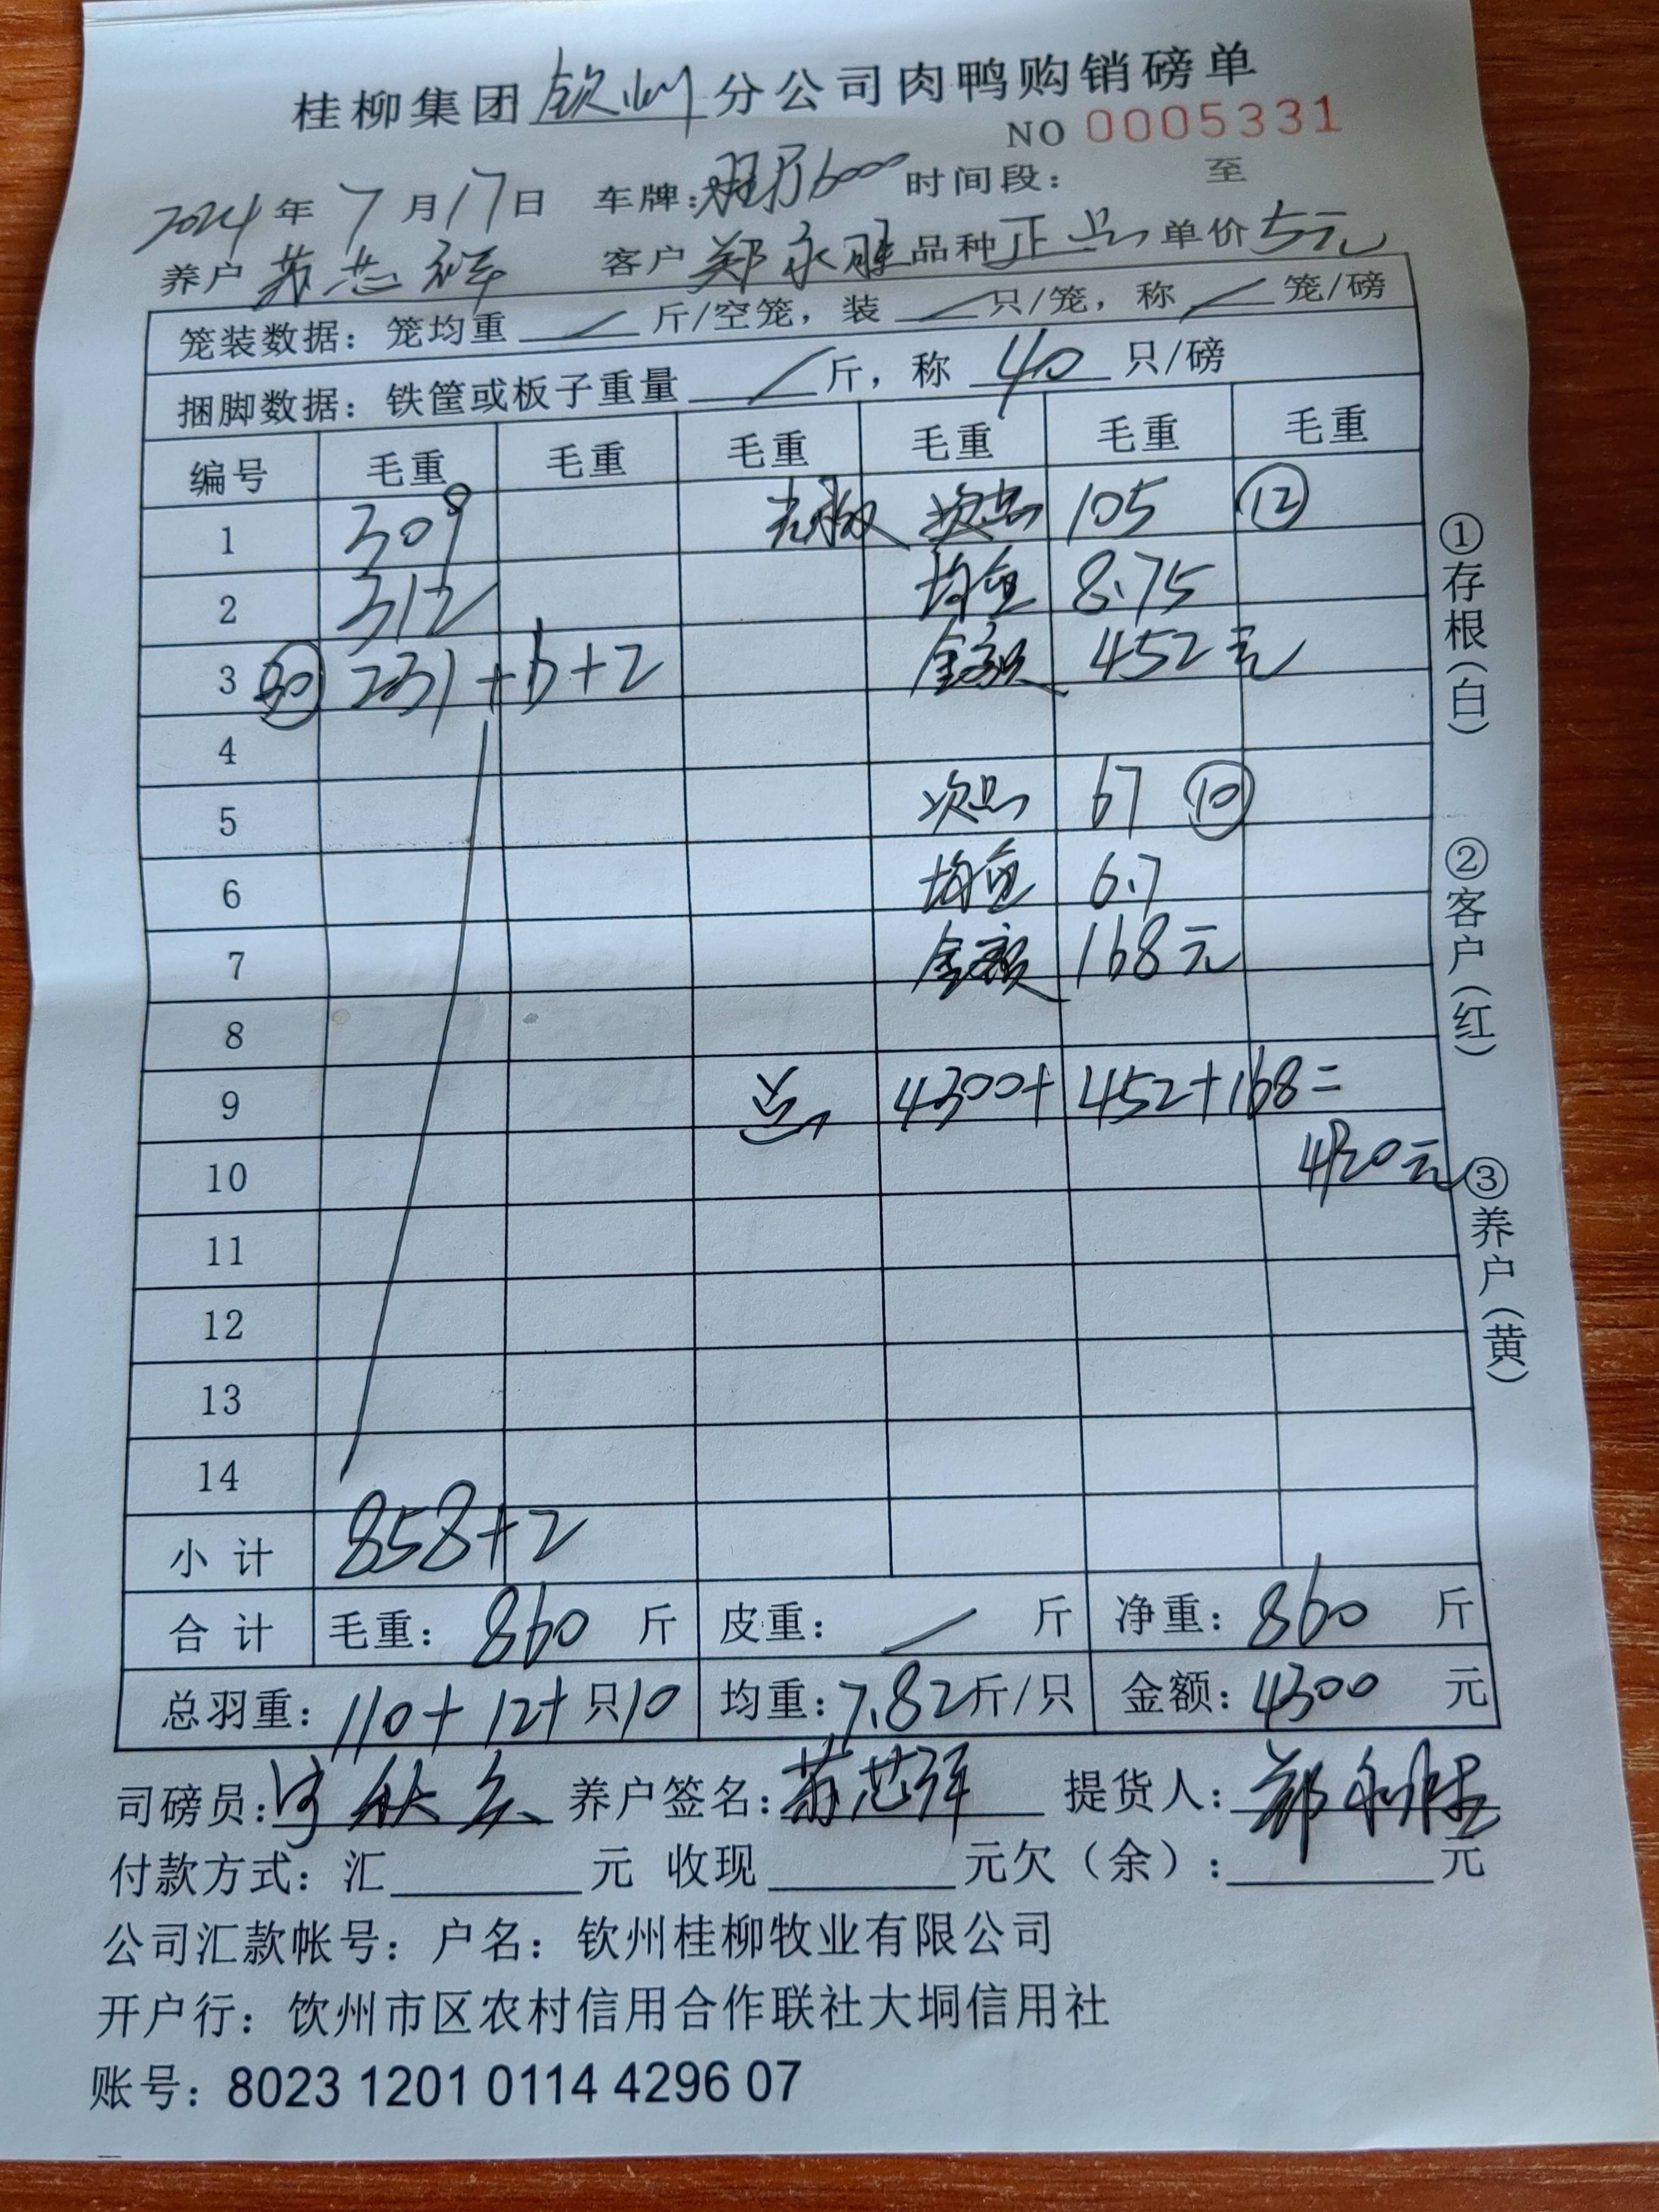 桂柳集团钦州分公司肉鸭购销磅单
NO 0005331
2024年7月17日 车牌: 时间段: 至
养户 苏芯祥 客户 郑永胜 品种 正品 单价 5元
笼装数据: 笼均重 / 斤/空笼, 装 / 只/笼, 称 / 笼/磅
捆脚数据: 铁筐或板子重量 / 斤, 称 40 只/磅
编号 毛重 毛重 毛重 毛重 毛重 毛重
1 309 次品 105 ⑫
2 312 均重 8.75
3 ㉚ 231+6+2 金额 452元
4
5 次品 67 ⑩
6 均重 6.7
7 金额 168元
8
9 总 4300+452+168=
10 4920元
11
12
13
14
小计 858+2
合计 毛重: 860 斤 皮重: / 斤 净重: 860 斤
总羽重: 110+12+只10 均重: 7.82斤/只 金额: 4300 元
司磅员: 养户签名: 苏芯祥 提货人: 郑永胜
付款方式: 汇 元 收现 元欠(余): 元
公司汇款帐号: 户名: 钦州桂柳牧业有限公司
开户行: 钦州市区农村信用合作联社大垌信用社
账号: 8023 1201 0114 4296 07
①存根(白)
②客户(红)
③养户(黄)